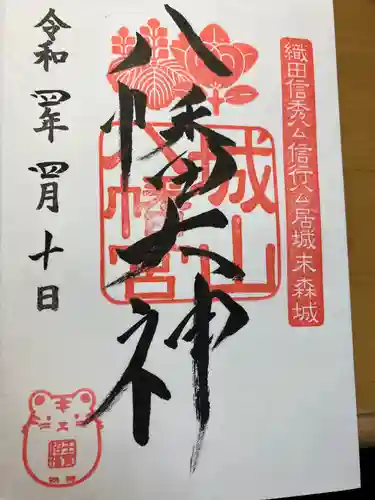 織田信秀公信行公居城末森城
八幡大神
城山八幡宮
令和四年四月十日